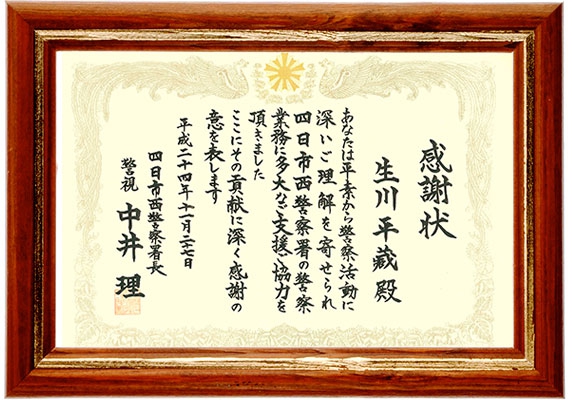 感謝状
生川平蔵殿
あなたは平素から警察活動に
深いご理解を寄せられ
四日市西警察署の警察
業務に多大なご支援ご協力を
頂きました
ここにその貢献に深く感謝の
意を表します
平成二十四年十一月二七日
四日市西警察署長
警視 中井 理